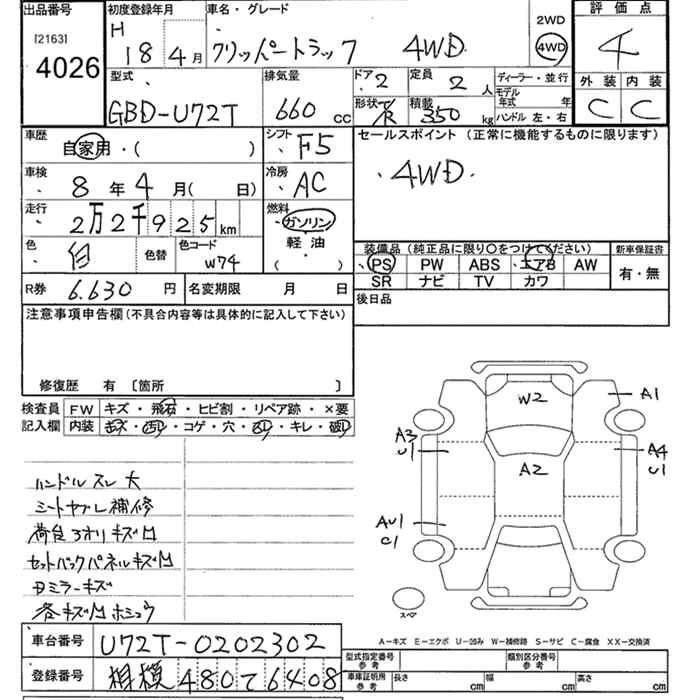 出品番号 初度登録年月 車名・グレード 評価点
[2163] H 2WD
4026 18年4月 クリッパートラック 4WD 4WD 4
型式 排気量 ドア 定員 ディーラー・並行 外装 内装
GBD-U72T 660cc 2 2人 モデル年式 年 C C
形状 積載 350kg ハンドル 左・右
車歴 シフト セールスポイント (正常に機能するものに限ります)
自家用・( ) F5
車検 冷房 4WD
8年4月( 日) AC
走行 燃料
2万2千925km ガソリン
色 色替 色コード 軽油 装備品 (純正品に限り○をつけてください) 新車保証書
白 W74 ( ) PS PW ABS エアB AW 有・無
R券 6.630円 名変期限 月 日 SR ナビ TV カワ
後日品
注意事項申告欄 (不具合内容等は具体的に記入して下さい)
修復歴 有 〔箇所 〕
検査員 FW キズ・飛石・ヒビ割・リペア跡・×要
記入欄 内装 キズ・汚レ・コゲ・穴・スレ・キレ・破レ
ハンドルスレ 大
シートヤブレ補修
荷台アオリキズ凹
セットバックパネルキズ凹
Dミラーキズ
各キズ凹ホシュウ
W2
A1
A3
U1
A2
A4
U1
AU1
C1
スペア
A-キズ E-エクボ U-凹み W-補修跡 S-サビ C-腐食 XX-交換済
車台番号 U72T-0202302
型式指定番号 参考 類別区分番号 参考
登録番号 相模 480て6408
車庫証明用 参考 長さ cm 幅 cm 高さ cm